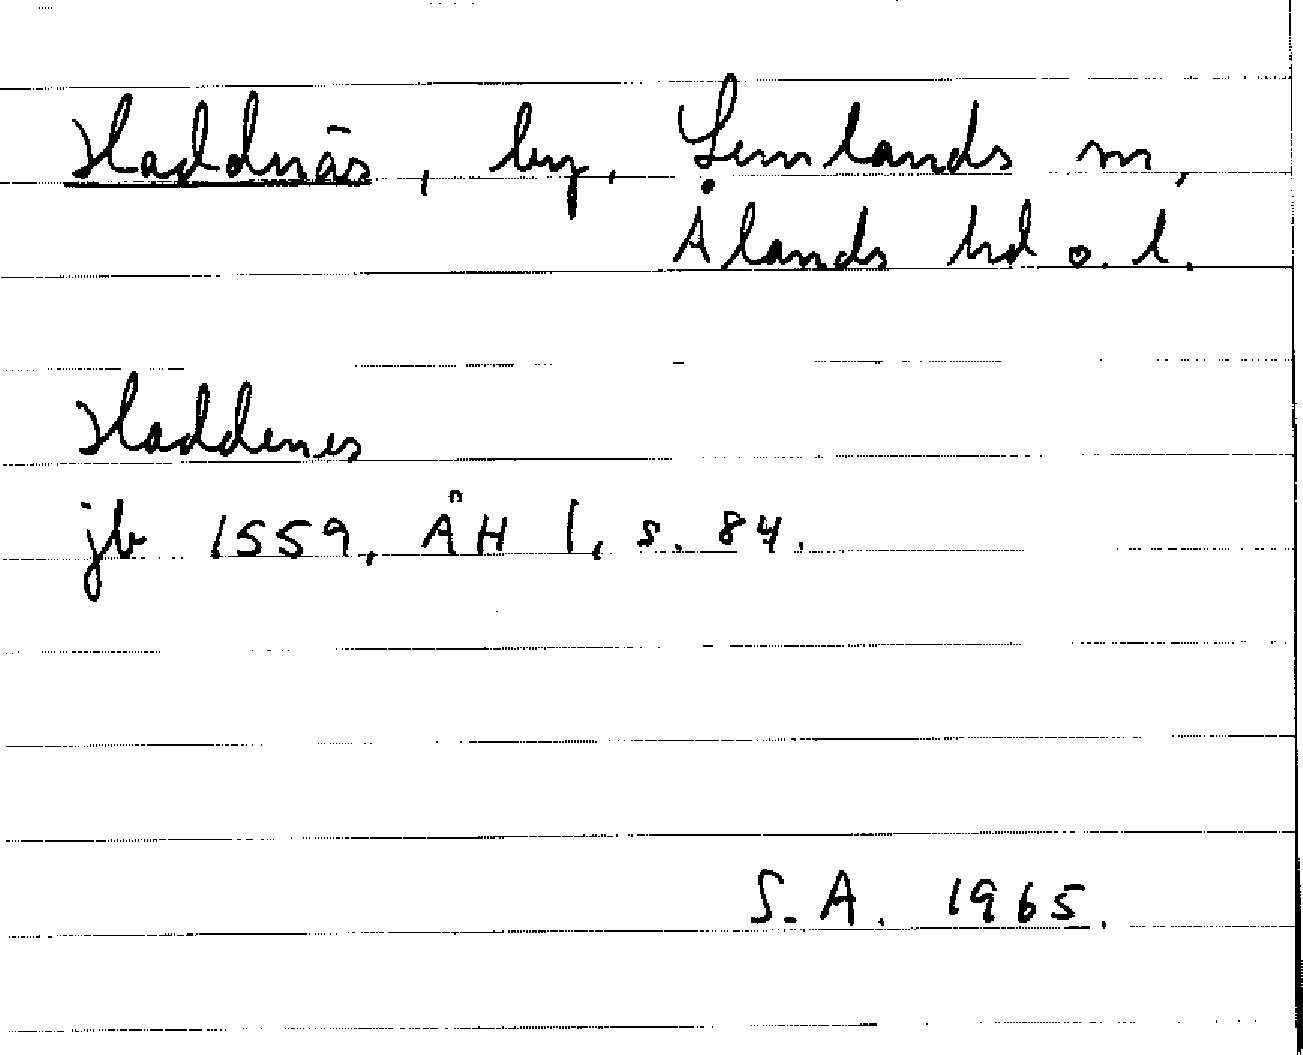 Haddnäs, by, Lemlands sn,
Ålands hd o. l.
Haddenes
jb 1559, ÅH 1, s. 84.
S. A. 1965.